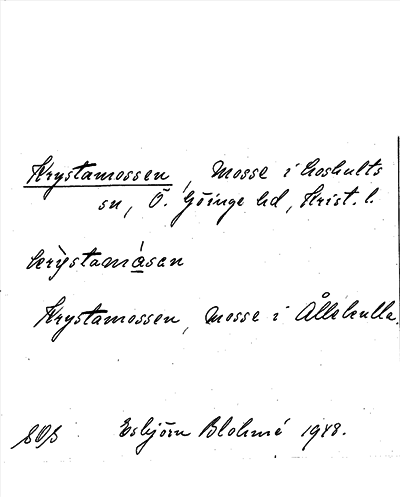 Krystamossen, Mosse i Loshults
sn, Ö. Göinge hd, Krist. l.
krỳstamásan
Krystamossen, Mosse i Ållekulla.
Esbjörn Blohmé 1948.